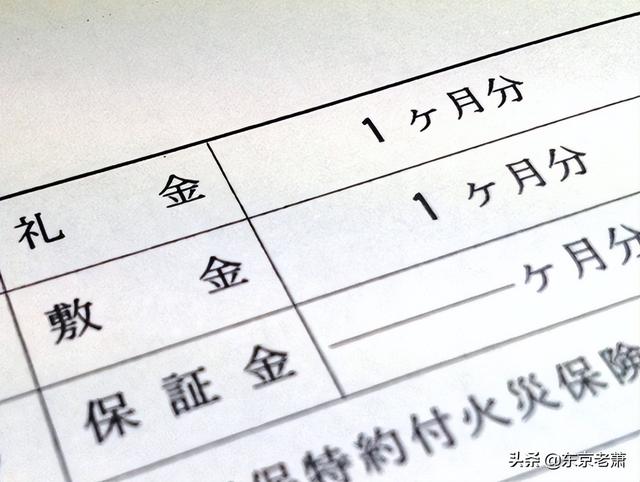 礼金 1ヶ月分
敷金 1ヶ月分
保証金 ヶ月分
特約付火災保険
头条 @东京老萧